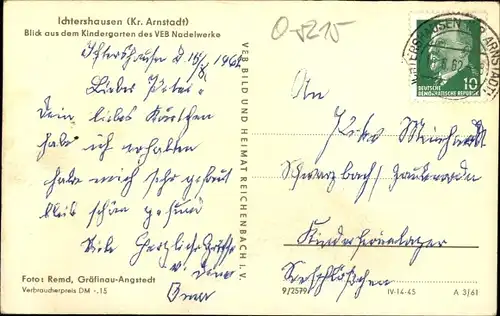 Ichtershausen (Kr. Arnstadt)
Blick aus dem Kindergarten des VEB Nadelwerke
Ichtershausen d. 15/8. 196
Lieber Peter
Dein liebes Kärtchen
habe ich erhalten
habe mich sehr gefreut
bleib schön gesund
Viele herzliche Grüße
v. Deine
Oma
Foto: Remd, Gräfinau-Angstedt
Verbraucherpreis DM -.15
VEB BILD UND HEIMAT REICHENBACH i. V.
O-5215
DEUTSCHE
DEMOKRATISCHE REPUBLIK
10
An
Peter
Schwarzbach
Kinderferienlager
9/2579
IV-14-45
A 3/61